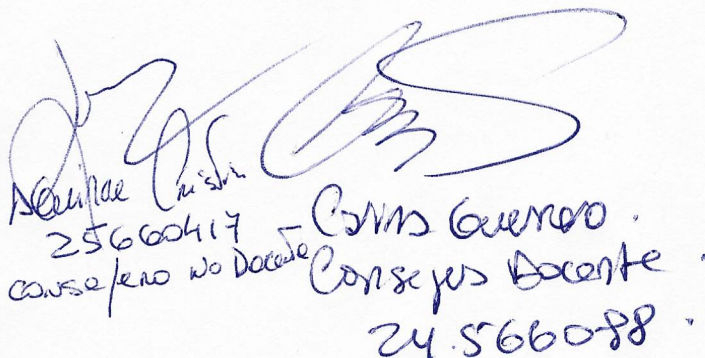 Aguilar Cristin
25660417
consejero no Docente
Guerrero.
Consejero Docente.
24.566088.